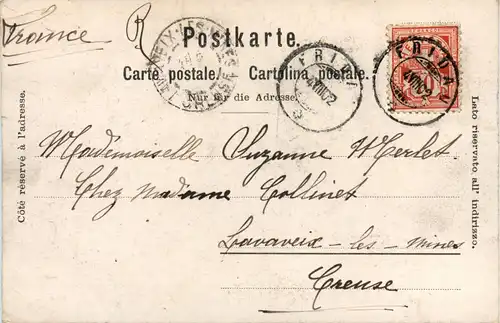 France
R
Postkarte.
Carte postale. Cartolina postale.
Nur für die Adresse.
FRIDAU
FRIDAU
Côté réservé à l'adresse.
Lato riservato all' indirizzo.
Mademoiselle Suzanne Merlet
Chez Madame Collinet
Lavaveix-les-mines
Creuse